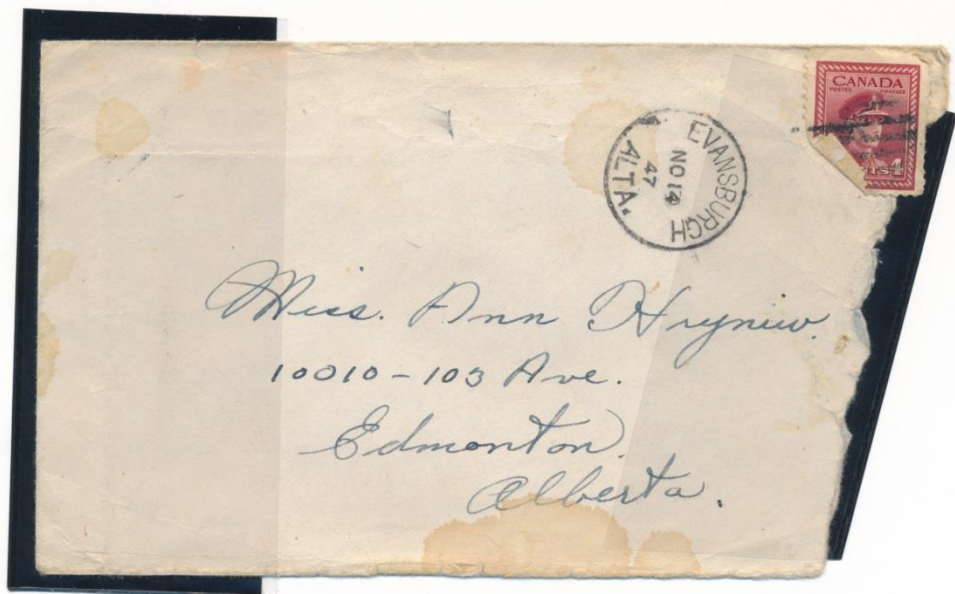 CANADA
POSTES POSTAGE
EVANSBURGH
NO 14
47
ALTA.
Miss. Ann Hryniw.
10010-103 Ave.
Edmonton.
Alberta.